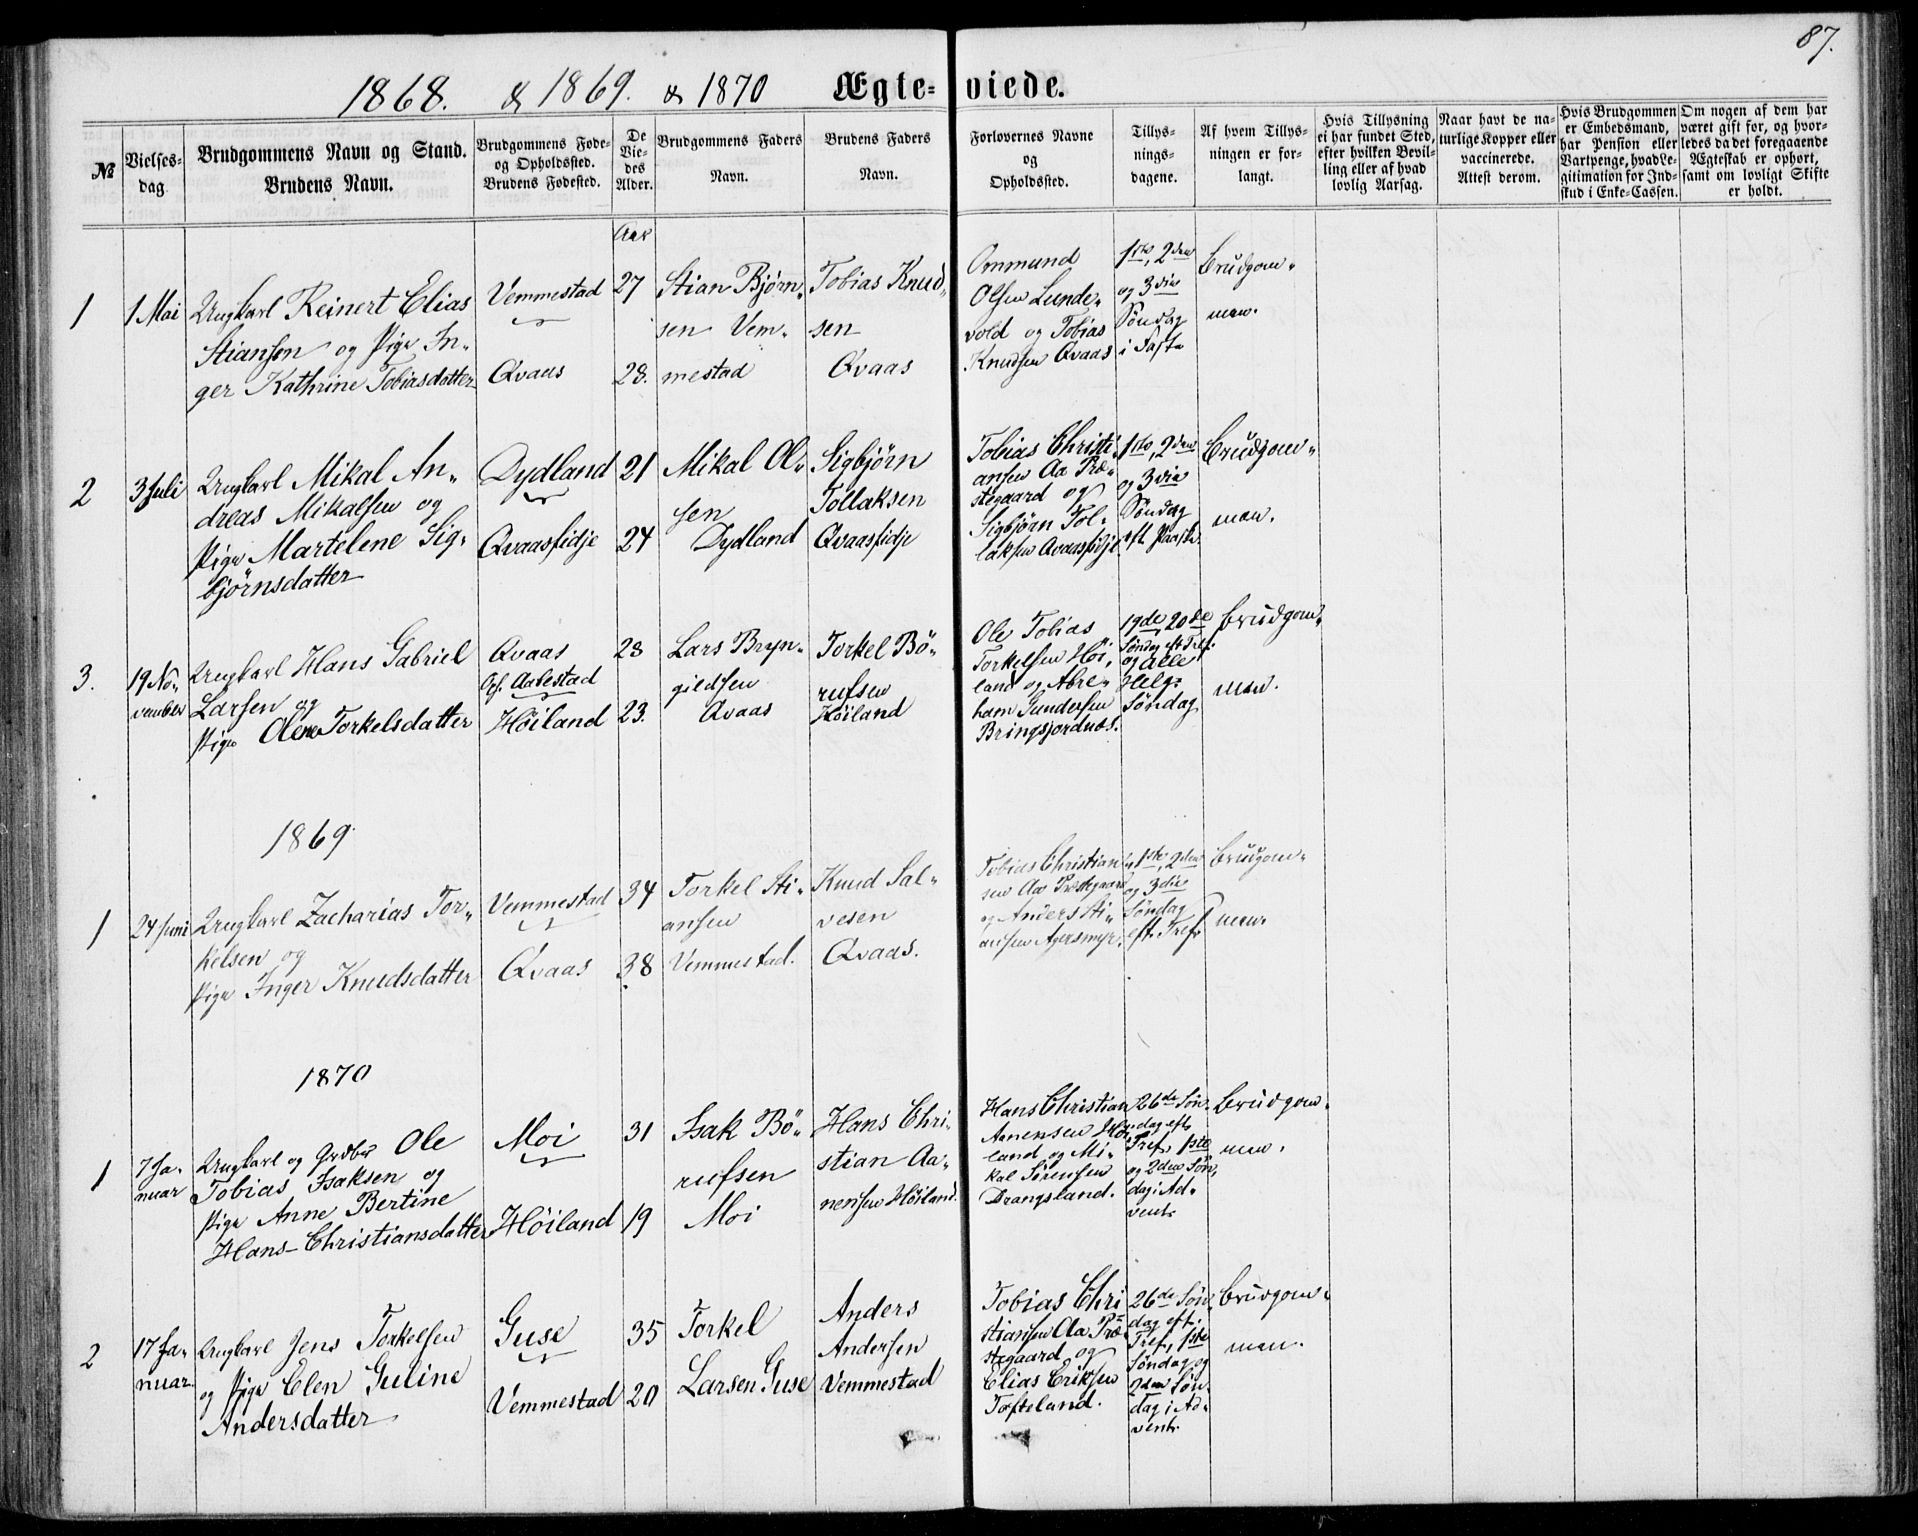 87.
1868. & 1869. & 1870 Ægte-viede.
№
Vielses-
dag.
Brudgommens Navn og Stand.
Brudens Navn.
Brudgommens Føde-
og Opholdssted.
Brudens Fødested.
De
Vie-
des
Alder.
Brudgommens Faders
Navn.
Brudens Faders
Navn.
Forlovernes Navne
og
Opholdssted.
Tillys-
nings-
dagene.
Af hvem Tillys-
ningen er for-
langt.
Hvis Tillysning
ei har fundet Sted,
efter hvilken Bevil-
ling eller af hvad
lovlig Aarsag.
Naar havt de na-
turlige Kopper eller
vaccinerede.
Attest derom.
Hvis Brudgommen
er Embedsmand,
har Pension eller
Vartpenge, hvad Le-
gitimation for Ind-
skud i Enke-Cassen.
Om nogen af dem har
været gift før, og hvor-
ledes da det foregaaende
Ægteskab er ophørt,
samt om lovligt Skifte
er holdt.
Aar
1
1 Mai
Ungkarl Reinert Elias
Stiansen og Pige In-
ger Kathrine Tobiasdatter
Vemmestad
Qvaas
27
28.
Stian Bjørn-
sen Vem-
mestad
Tobias Knud-
sen
Qvaas
Ommund
Olsen Lunde-
vold og Tobias
Knudsen Qvaas
1ste, 2den
og 3die
Søndag
i Faste
Brudgom-
men.
2
3 Juli
Ungkarl Mikal An-
dreas Mikalsen og
Pige Martelene Sig-
bjørnsdatter
Dydland
Qvaasfidje
21
24
Mikal Ol-
sen
Dydland
Sigbjørn
Tollaksen
Qvaasfidje
Tobias Christi-
ansen Aa Præ-
stegaard og
Sigbjørn Tol-
laksen Qvaasfidje
1ste, 2den
og 3die
Søndag
eft. Paaske.
Brudgom-
men.
3.
19 No-
vember
Ungkarl Hans Gabriel
Larsen og
Pige Olene Torkelsdatter
Qvaas
Aabestad
Höiland
28
23.
Lars Bryn-
gildsen
Qvaas
Torkel Bö-
rufsen
Höiland
Ole Tobias
Torkelsen Höi-
land og Abre-
ham Gundersen
Bringsjordnæs.
19de, 20de
Søndag eft. Tref.
og Alle
Helg:
Søndag
Brudgom-
men.
1869
1
24 Juni
Ungkarl Zacharias Tor-
kelsen og
Pige Inger Knudsdatter
Vemmestad
Qvaas
34
38
Torkel Sti-
ansen
Vemmestad.
Knud Sal-
vesen
Qvaas.
Tobias Christian-
sen Aa Præstegaard
og Anders Sti-
ansen Agersmyr.
1ste, 2den
og 3die
Søndag
eft. Tref.
Brudgom-
men
1870
1
7 Ja-
nuar
Ungkarl og Gdbr Ole
Tobias Isaksen og
Pige Anne Bertine
Hans-Christiansdatter
Moi
Höiland
31
19
Isak Bö-
rufsen
Moi
Hans Chri-
stian Aa-
nensen Höiland.
Hans Christian
Aanensen Höi-
land og Mi-
kal Sørensen
Drangsland.
26de Søn-
dag eft.
Tref, 1ste
og 2den Søn-
dag i Ad-
vent.
Brudgom-
men.
2
17 Ja-
nuar
Ungkarl Jens Torkelsen
og Pige Elen Guline
Andersdatter
Guse
Vemmestad
35
20
Torkel
Larsen Guse
Anders
Andersen
Vemmestad
Tobias Chri-
stiansen Aa Præ-
stegaard og
Elias Eriksen
Tofteland.
26de Søn-
dag eft.
Tref, 1ste
Søndag og
2den Søn-
dag i Ad-
vent.
Brudgom-
men.